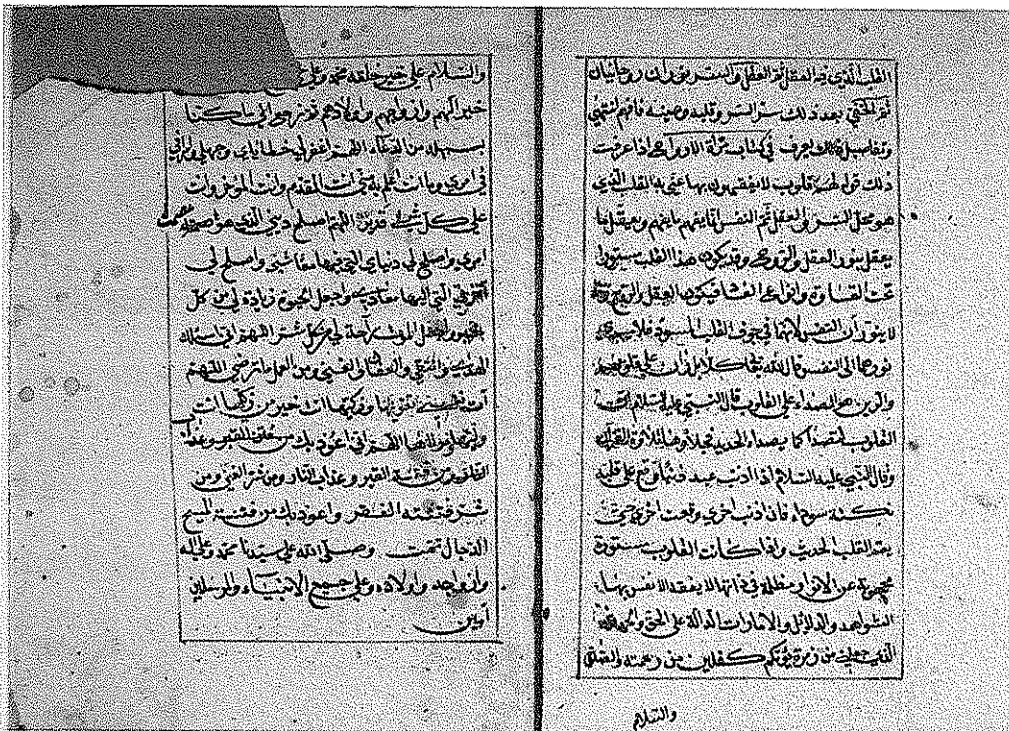 القلب الذي فيه العقل ثم العقل والسر نوران روحانيان
ثم الخفي بعد ذلك سر السر وقلبه وعينه فافهم تنتهي
وتفاصيل ذلك يعرف في كتاب الارواح اذا عرفت
ذلك قوله لهم قلوب لا يفقهون بها عني به القلب الذي
هو محل السر والعقل ثم النفس انما يفهم ما يفهم ويعقل ما
يعقل بنور العقل والروح وقد يكون هذا القلب مستورا
تحت القساوة وانواع الغشا فيكون العقل والروح
لا ينوران النفس لانهما في جوف القلب المستور فلا يسري
نورهما الى النفس قال الله تعالى كلا بل ران على قلوبهم
والرين هو الصداء على القلوب قال النبي عليه السلام ان
القلوب لتصدأ كما يصداء الحديد فجلاوها تلاوة القران
وقال النبي عليه السلام اذا اذنب عبد ذنبا وقع على قلبه
نكتة سوداء فان اذنب اخرى وقعت اخرى حتى
القلب الحديث واذا كانت القلوب مستورة
محجوبة عن الانوار مظلمة في ذاتها لا يفقه الانفس بها
الشواهد والدلائل والاشارات الدالة على الحق والحمد لله
الذي جعلك من زمرة يؤتكم كفلين من رحمته والصلوة
والسلام
والسلام على خير خلقه محمد وعلى
خير الهم وازواجهم واولادهم
من العطاء اللهم اغفر لي خطاياي وجهلي واسرافي
في امري وما انت اعلم به مني انت المقدم وانت المؤخر وانت
على كل شيء قدير اللهم اصلح ديني الذي هو عصمة
امري واصلح لي دنياي التي فيها معاشي واصلح لي
اخرتي التي اليها معادي واجعل الحيوة زيادة لي من كل
خير واجعل الموت راحة لي من كل شر اللهم اني اسالك
الهدى والتقى والعفاف والغنى ومن العمل ما ترضى اللهم
آت نفسي تقويها وزكها انت خير من زكيها انت
وليها ومولاها اللهم اني اعوذ بك من
فتنة القبر وعذاب النار ومن شر الغنى ومن
شر فتنة الفقر واعوذ بك من فتنة المسيح
الدجال تمت وصلى الله على سيدنا محمد وعلى اله
وازواجه واولاده وعلى جميع الانبياء والمرسلين
آمين